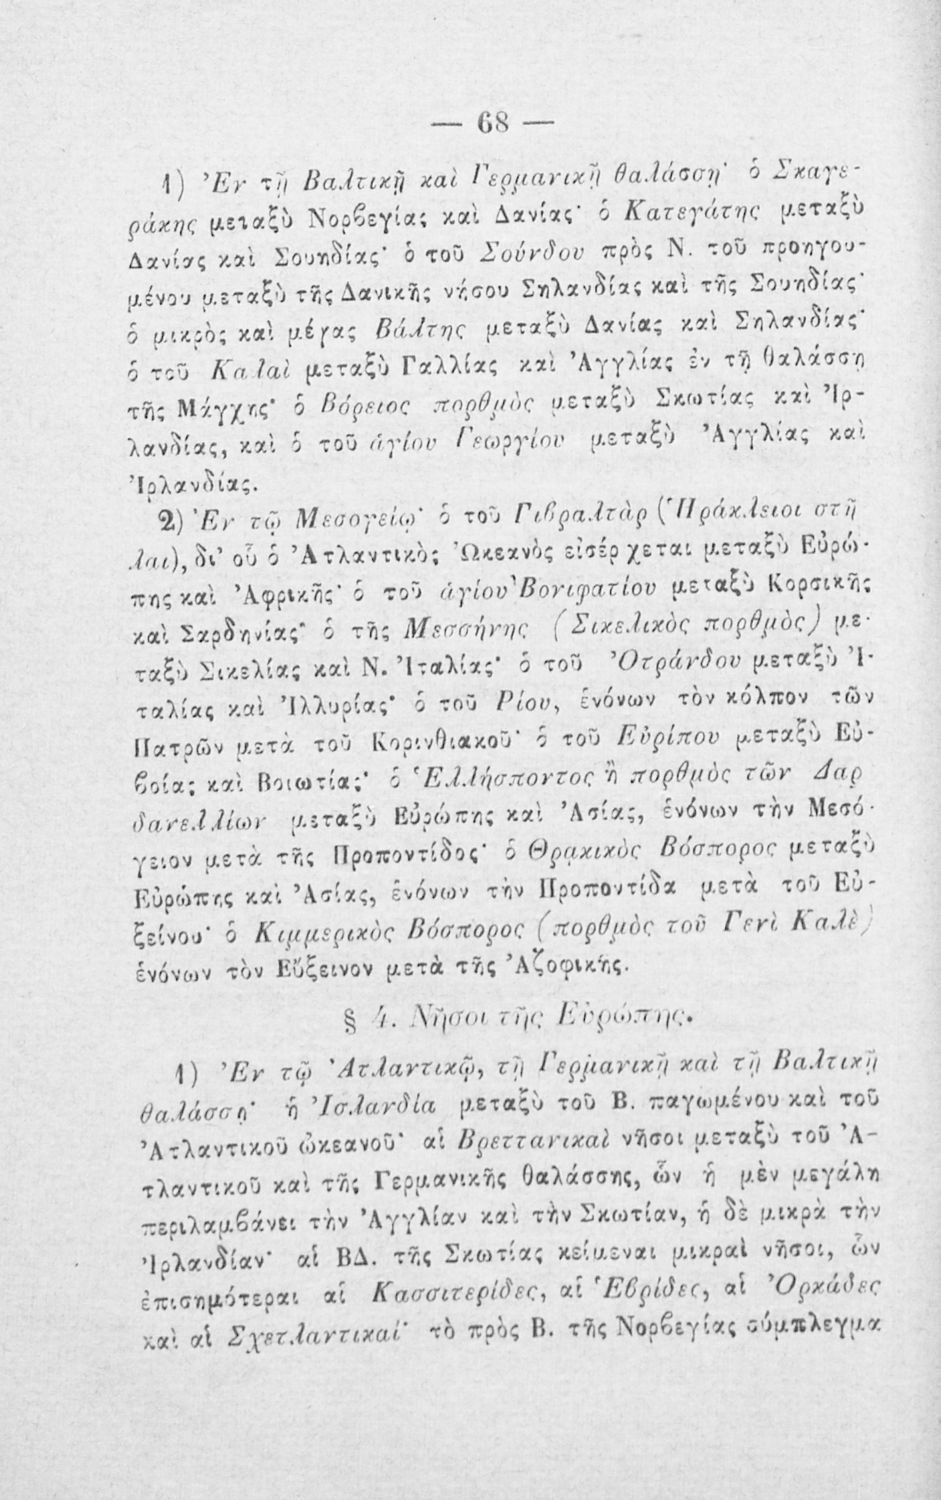 — 68 —
1) Ἐν τῇ Βαλτικῇ καὶ Γερμανικῇ θαλάσσῃ· ὁ Σκαγε-
ράκης μεταξὺ Νορβεγίας καὶ Δανίας· ὁ Κατεγάτης μεταξὺ
Δανίας καὶ Σουηδίας· ὁ τοῦ Σούνδου πρὸς Ν. τοῦ προηγου-
μένου μεταξὺ τῆς Δανικῆς νήσου Σηλανδίας καὶ τῆς Σουηδίας·
ὁ μικρὸς καὶ μέγας Βάλτης μεταξὺ Δανίας καὶ Σηλανδίας·
ὁ τοῦ Καλαὶ μεταξὺ Γαλλίας καὶ Ἀγγλίας ἐν τῇ θαλάσσῃ
τῆς Μάγχης· ὁ Βόρειος πορθμὸς μεταξὺ Σκωτίας καὶ Ἰρ-
λανδίας, καὶ ὁ τοῦ ἁγίου Γεωργίου μεταξὺ Ἀγγλίας καὶ
Ἰρλανδίας.
2) Ἐν τῷ Μεσογείῳ· ὁ τοῦ Γιβραλτὰρ (Ἡράκλειοι στῆ
λαι), δι’ οὗ ὁ Ἀτλαντικὸς Ὠκεανὸς εἰσέρχεται μεταξὺ Εὐρώ-
πης καὶ Ἀφρικῆς· ὁ τοῦ ἁγίου Βονιφατίου μεταξὺ Κορσικῆς
καὶ Σαρδηνίας· ὁ τῆς Μεσσήνης (Σικελικὸς πορθμὸς) με-
ταξὺ Σικελίας καὶ Ν. Ἰταλίας· ὁ τοῦ Ὀτράνδου μεταξὺ Ἰ-
ταλίας καὶ Ἰλλυρίας· ὁ τοῦ Ρίου, ἑνόνων τὸν κόλπον τῶν
Πατρῶν μετὰ τοῦ Κορινθιακοῦ· ὁ τοῦ Εὐρίπου μεταξὺ Εὐ-
βοίας καὶ Βοιωτίας· ὁ Ἑλλήσποντος ἢ πορθμὸς τῶν Δαρ
δανελλίων μεταξὺ Εὐρώπης καὶ Ἀσίας, ἑνόνων τὴν Μεσό-
γειον μετὰ τῆς Προποντίδος· ὁ Θρᾳκικὸς Βόσπορος μεταξὺ
Εὐρώπης καὶ Ἀσίας, ἑνόνων τὴν Προποντίδα μετὰ τοῦ Εὐ-
ξείνου· ὁ Κιμμερικὸς Βόσπορος (πορθμὸς τοῦ Γενὶ Καλὲ)
ἑνόνων τὸν Εὔξεινον μετὰ τῆς Ἀζοφικῆς.
§ 4. Νῆσοι τῆς Εὐρώπης.
1) Ἐν τῷ Ἀτλαντικῷ, τῇ Γερμανικῇ καὶ τῇ Βαλτικῇ
θαλάσσῃ· ἡ Ἰσλανδία μεταξὺ τοῦ Β. παγωμένου καὶ τοῦ
Ἀτλαντικοῦ ὠκεανοῦ· αἱ Βρεττανικαὶ νῆσοι μεταξὺ τοῦ Ἀ-
τλαντικοῦ καὶ τῆς Γερμανικῆς θαλάσσης, ὧν ἡ μὲν μεγάλη
περιλαμβάνει τὴν Ἀγγλίαν καὶ τὴν Σκωτίαν, ἡ δὲ μικρὰ τὴν
Ἰρλανδίαν· αἱ ΒΔ. τῆς Σκωτίας κείμεναι μικραὶ νῆσοι, ὧν
ἐπισημότεραι αἱ Κασσιτερίδες, αἱ Ἑβρίδες, αἱ Ὀρκάδες
καὶ αἱ Σχετλαντικαί· τὸ πρὸς Β. τῆς Νορβεγίας σύμπλεγμα